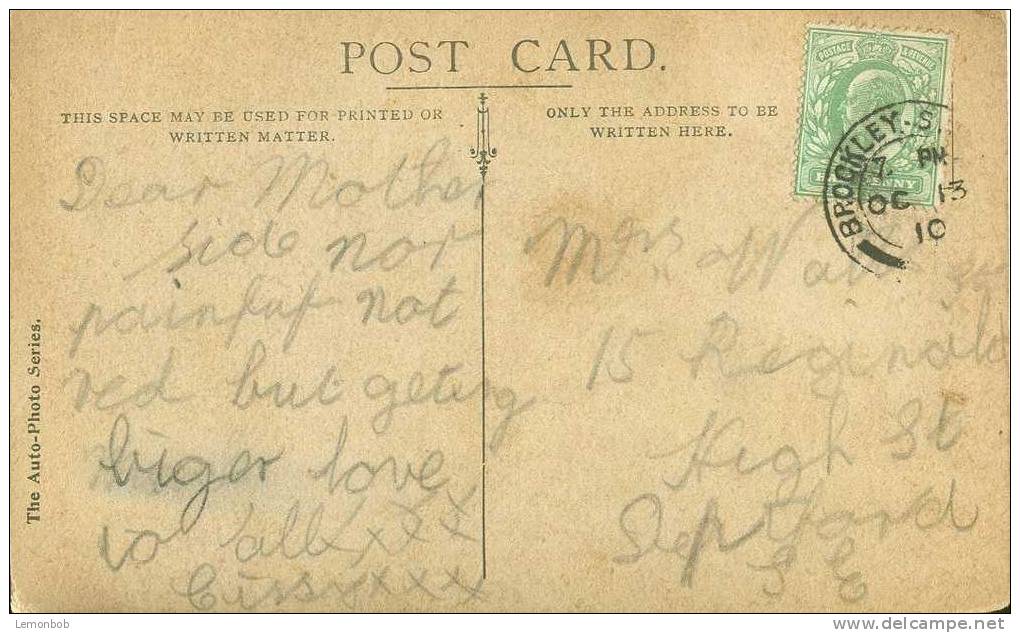 POST CARD.
THIS SPACE MAY BE USED FOR PRINTED OR
WRITTEN MATTER.
ONLY THE ADDRESS TO BE
WRITTEN HERE.
POSTAGE & REVENUE
HALFPENNY
BROCKLEY. S.
7. PM
OC 13
10
Dear Mother
side not
painful not
red but geting
biger love
to all xxxx
Cissy xxxx
Mrs
15 Reginald
High St
Deptford
S E
The Auto-Photo Series.
Lemonbob
delcampe.net